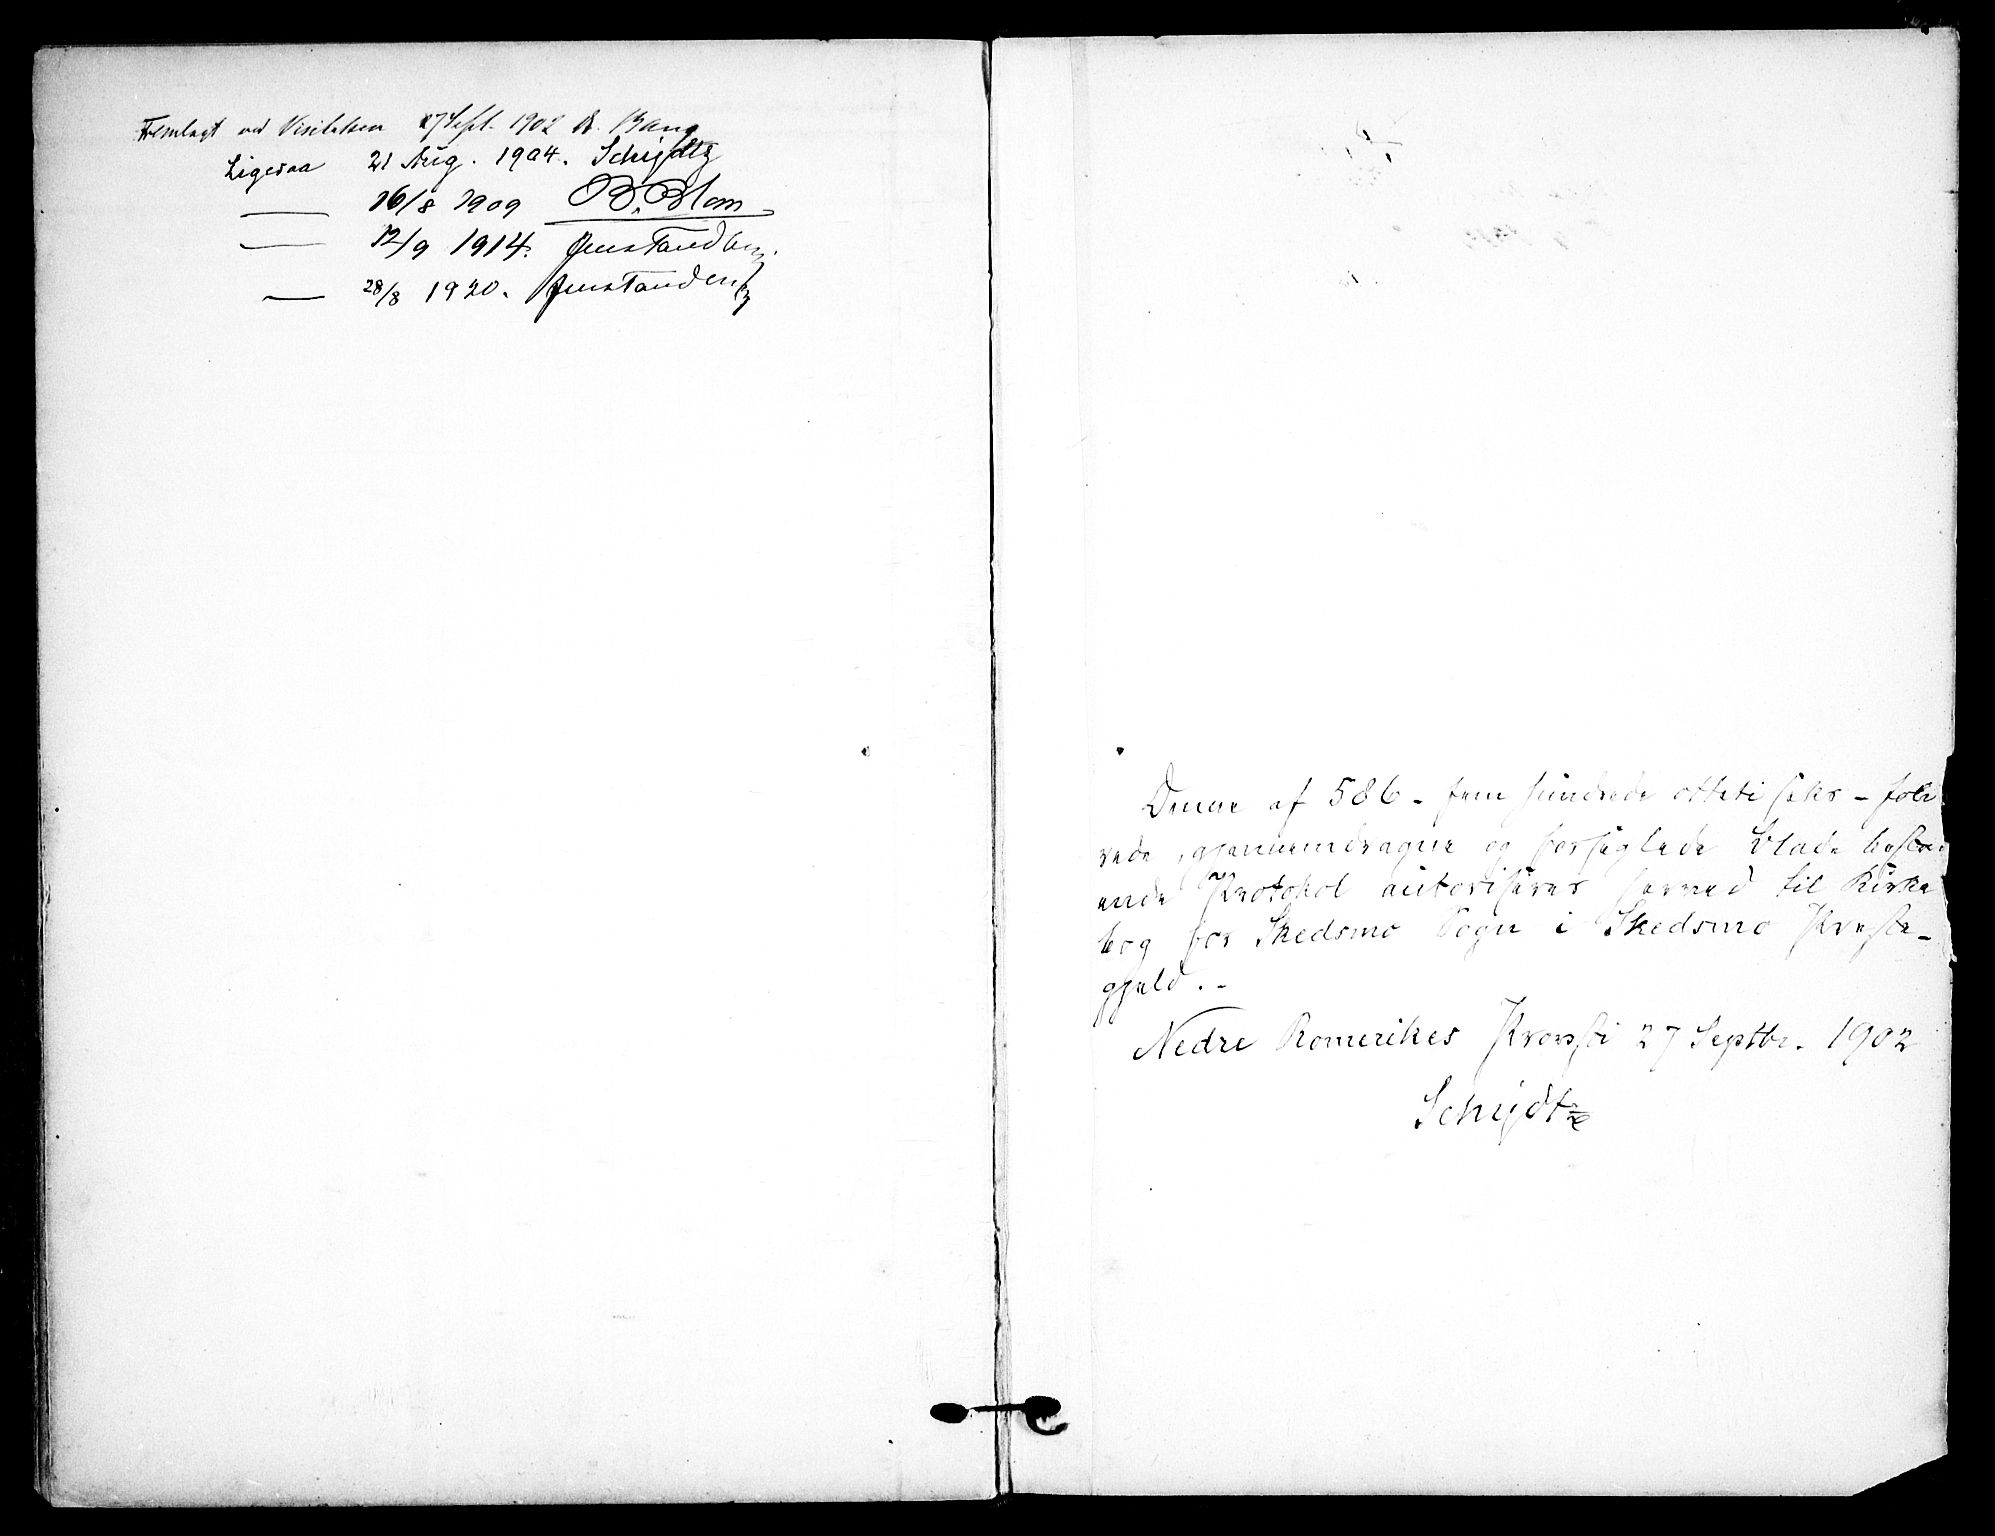 Fremlagt ved Visitatsen 27 Sept. 1902 A. Bang
Ligesaa 21 Aug. 1904. Schijdtz
— 16/8 1909 B. Blom
— 12/9 1914. Jens Tandberg.
— 28/8 1920. Jens Tandberg
Denne af 586 - fem hundrede otteti seks - folie
rede, gjennemdragne og forseglede Blade bestaa
ende Protokol autoriseres herved til Kirke
bog for Skedsmo Sogn i Skedsmo Præste-
gjeld. -
Nedre Romerikes Provsti 27 Septbr. 1902
Schijdtz